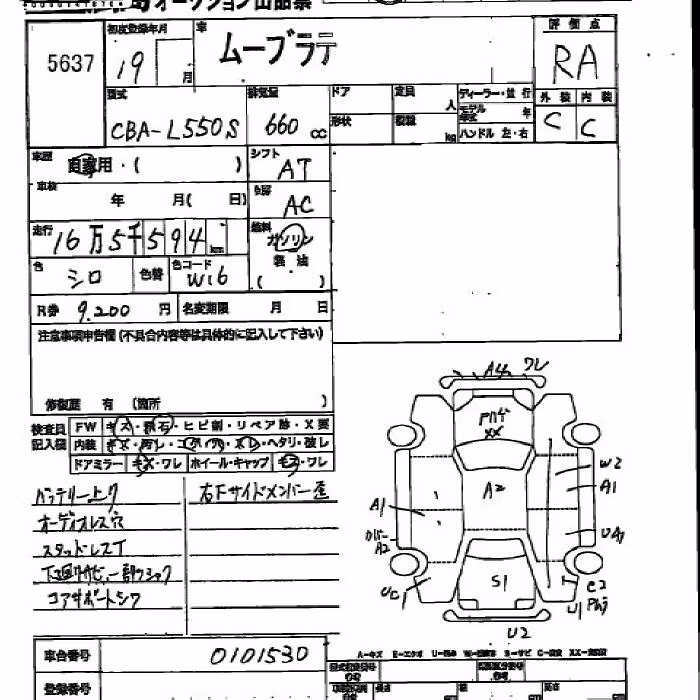 オークション出品票
5637
初度登録年月
19 月
車
ムーブラテ
評価点
RA
型式
CBA-L550S
排気量
660 cc
ドア
形状
定員
人
積載
kg
ディーラー・並行
モデル年式 年
ハンドル 左・右
外装 内装
C C
車歴
自家用・( )
シフト
AT
車検
年 月( 日)
冷房
AC
走行
16万5千594 km
燃料
ガソリン
軽油
( )
色
シロ
色替
色コード
W16
R券 9,200 円
名変期限 月 日
注意事項申告欄(不具合内容等は具体的に記入して下さい)
修復歴 有 (箇所 )
検査員記入欄
FW キズ・飛石・ヒビ割・リペア跡・X要
内装 キズ・汚レ・コゲ穴・スレ・ヘタリ・破レ
ドアミラー キズ・ワレ ホイール・キャップ キズ・ワレ
バッテリー上ゲ
オーディオレス穴
スタッドレスT
下廻サビ、一部クシャク
コアサポートシワ
右下サイドメンバー歪
A4 ワレ
XX
A2
W2
A1
A1
カバー
A2
UA
UC1
S1
C2
U1
U2
車台番号
0101530
登録番号
A-キズ E-エクボ U-凹み W-補修跡 S-サビ C-腐蝕 XX-交換済